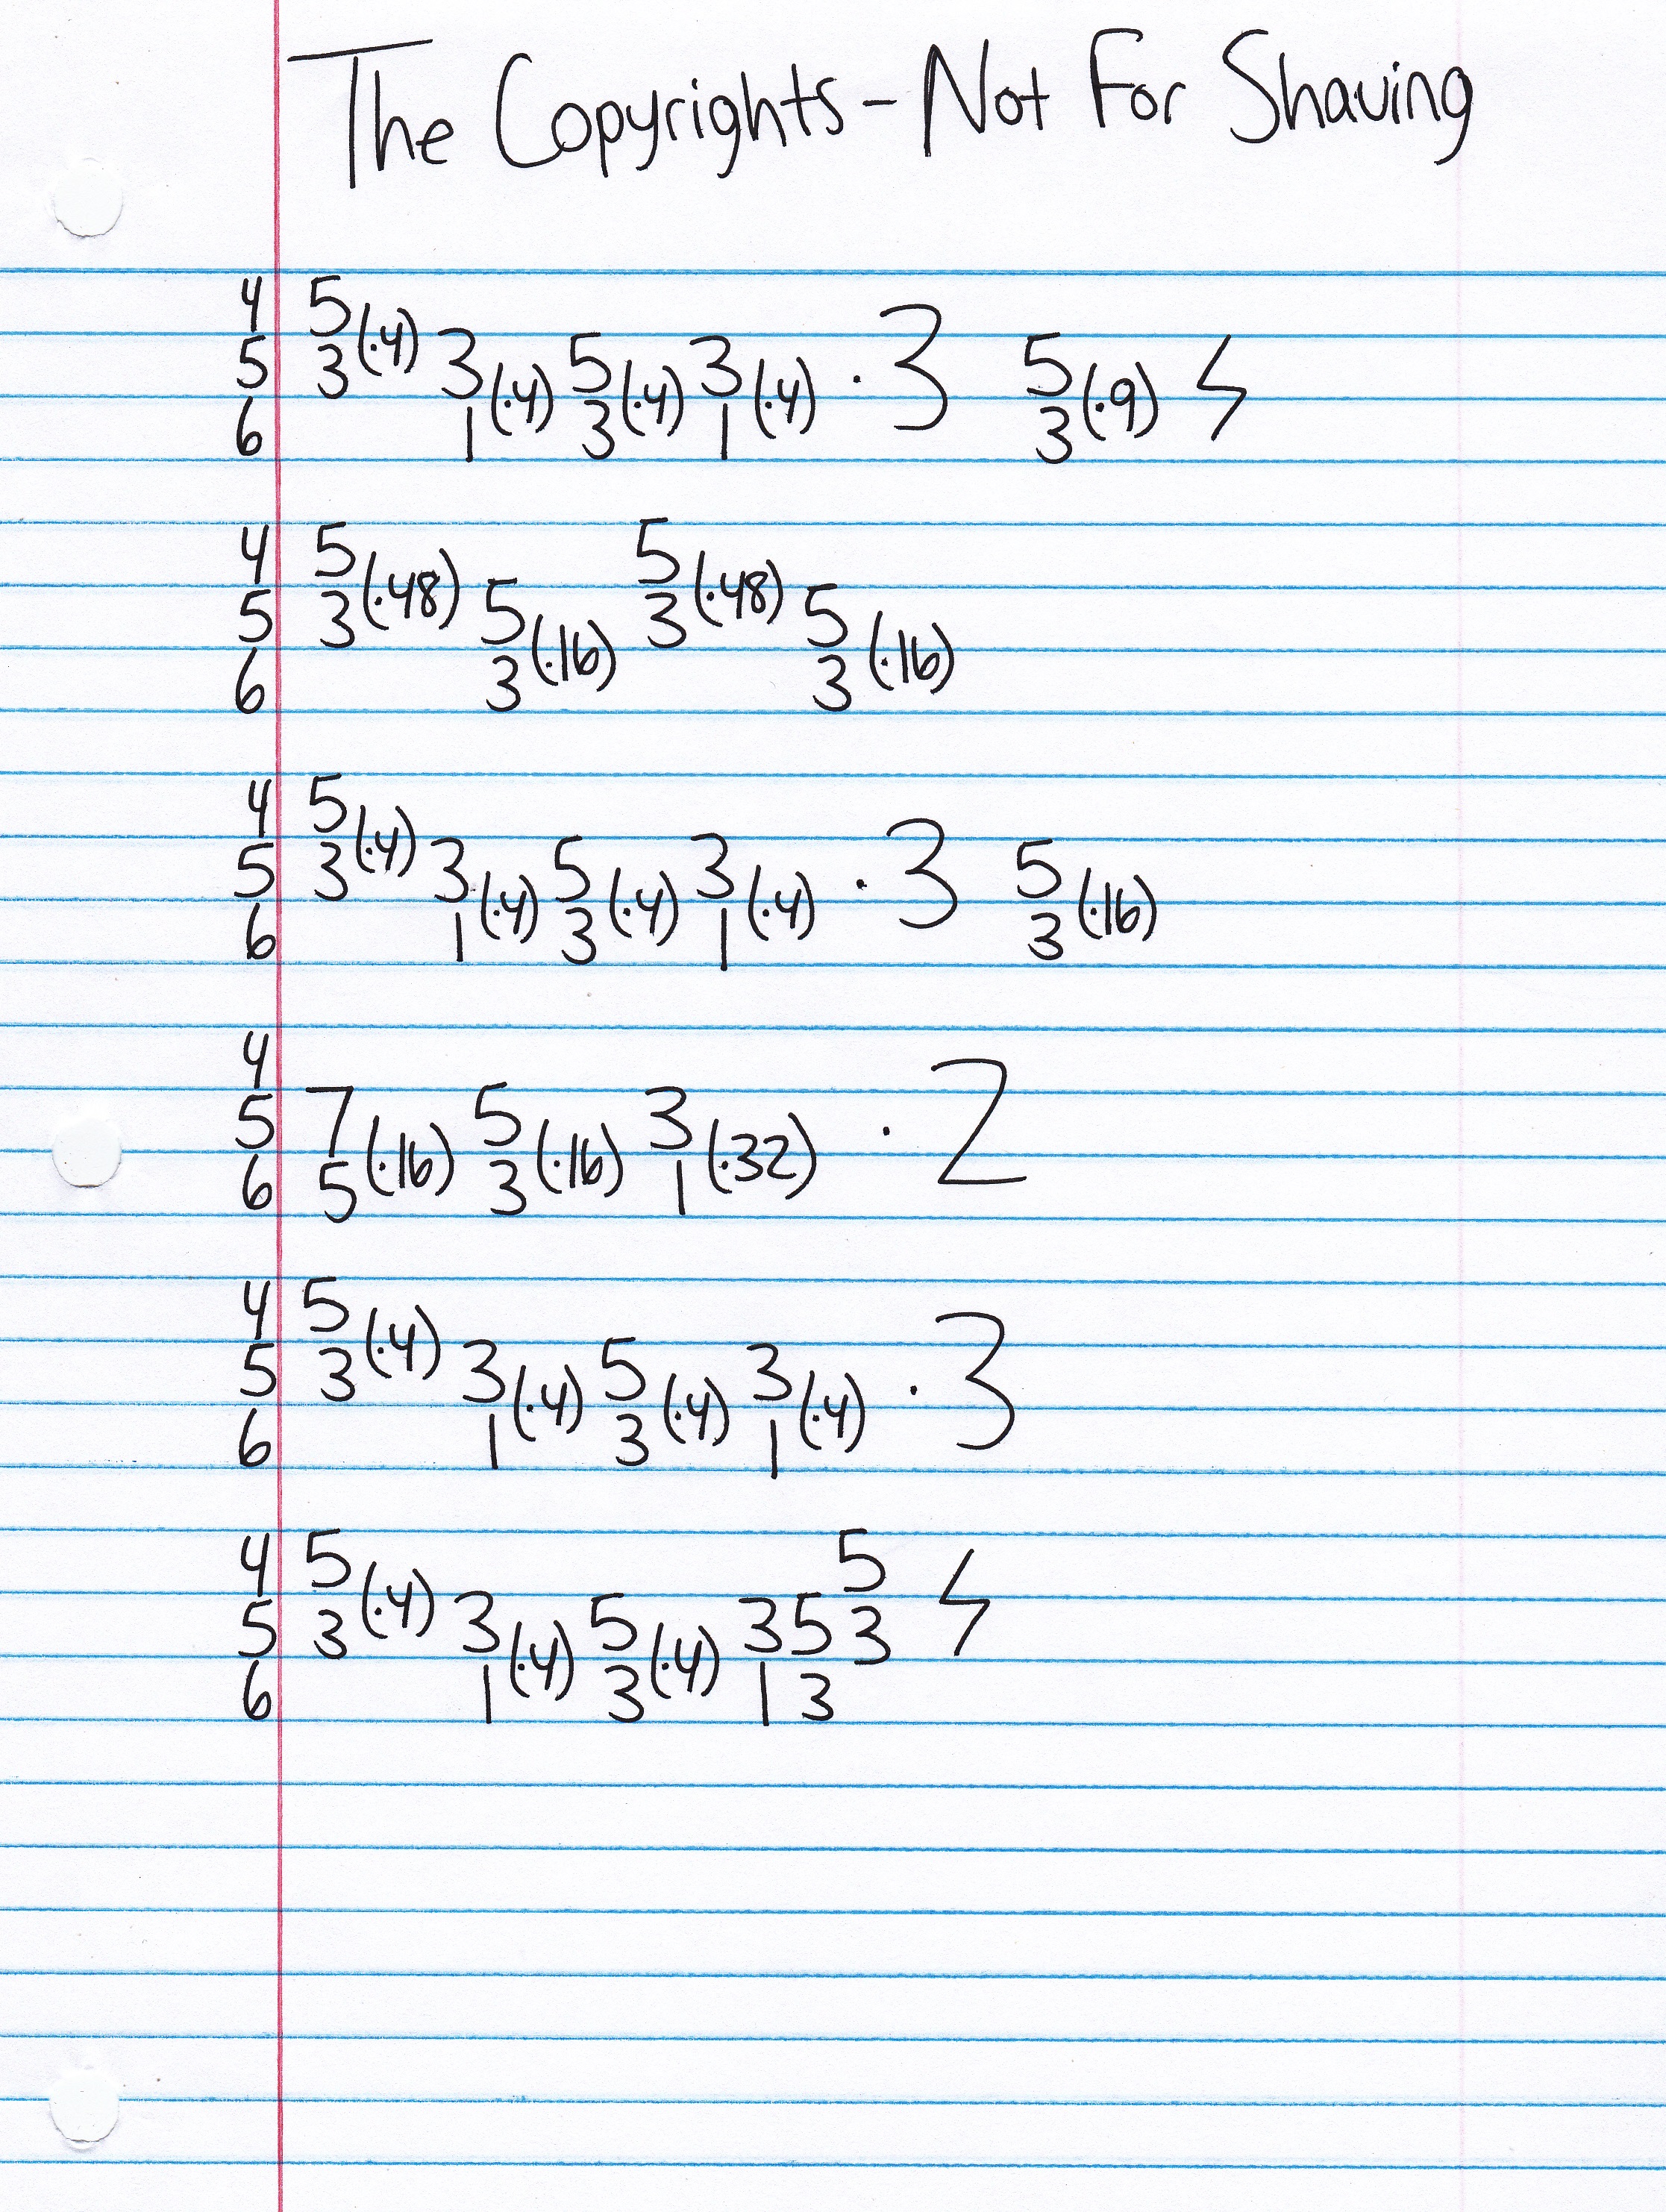 The Copyrights - Not For Shaving
4 5
5 3 (·4) 3 5 3 · 3 5
6 1 (·4) 3 (·4) 1 (·4) 3 (·9)
4 5 5
5 3 (·48) 5 3 (·48) 5
6 3 (·16) 3 (·16)
4 5
5 3 (·4) 3 5 3 · 3 5
6 1 (·4) 3 (·4) 1 (·4) 3 (·16)
4
5 7 5 3 · 2
6 5 (·16) 3 (·16) 1 (·32)
4 5
5 3 (·4) 3 5 3 · 3
6 1 (·4) 3 (·4) 1 (·4)
4 5 5
5 3 (·4) 3 5 3 5 3
6 1 (·4) 3 (·4) 1 3